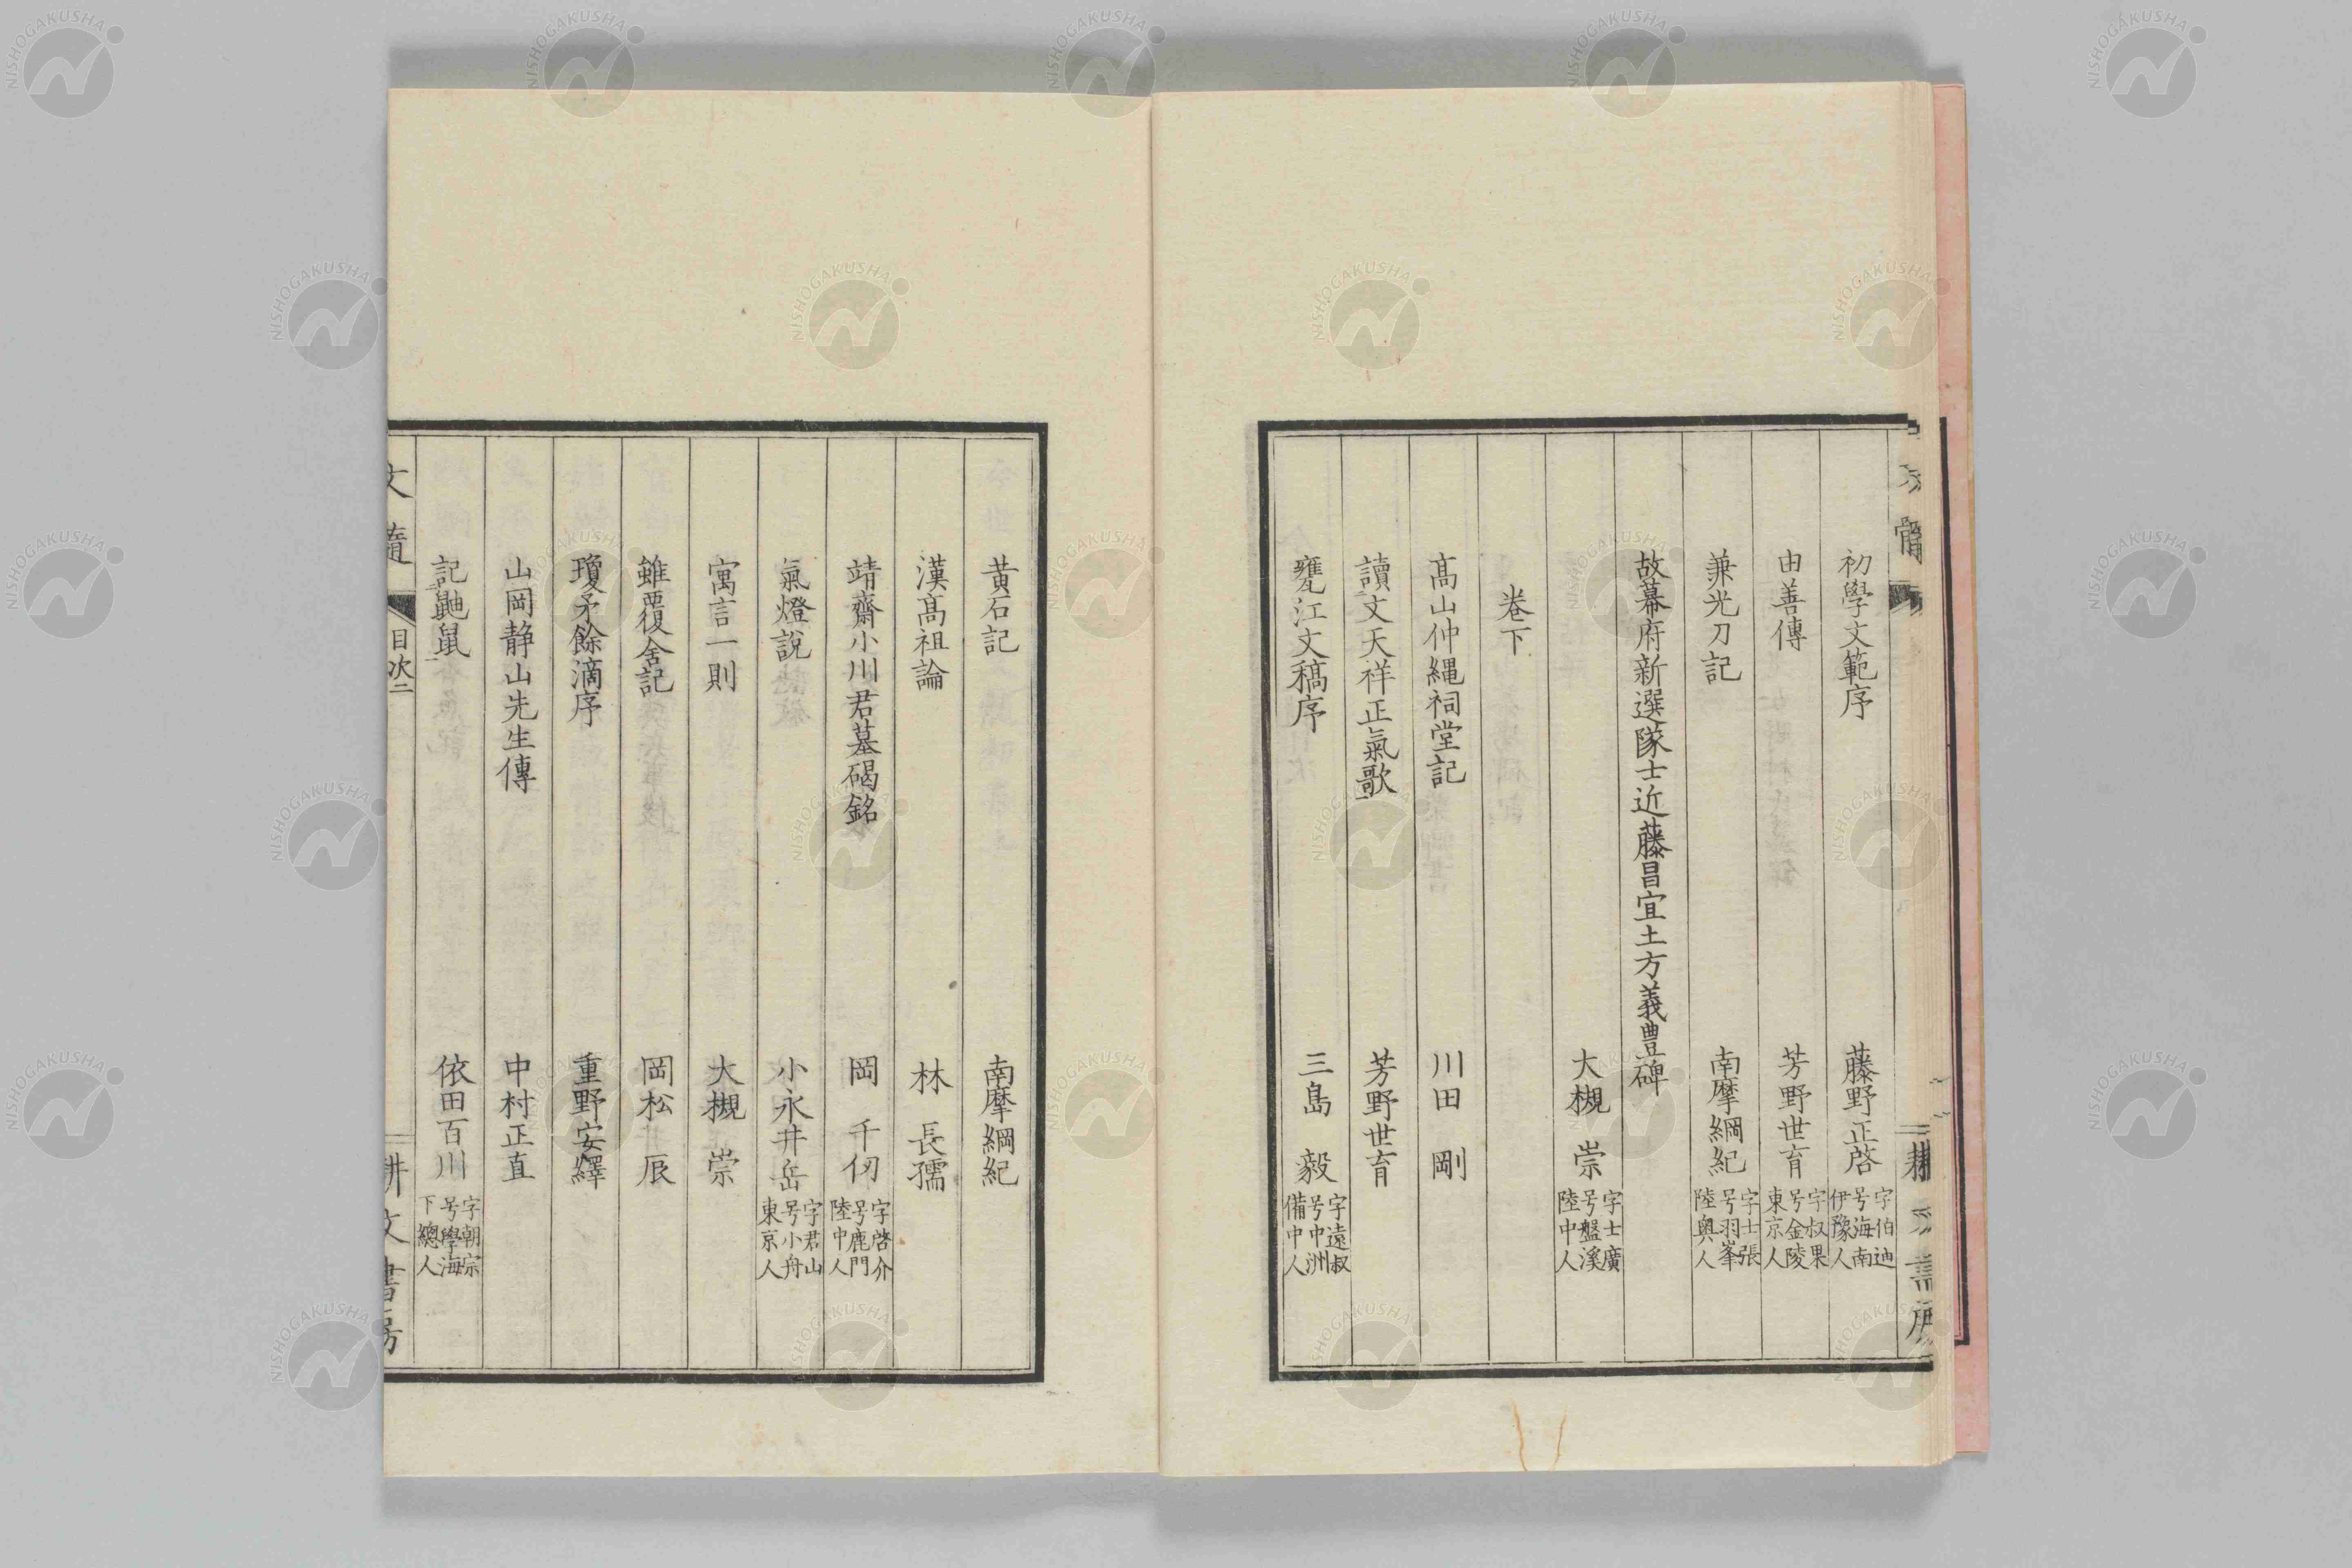 初學文範序 藤野正啓 字伯迪 号海南 伊豫人
由善傳 芳野世育 字叔果 号金陵 東京人
兼光刀記 南摩綱紀 字士張 号羽峯 陸奥人
故幕府新選隊士近藤昌宜土方義豊碑
大槻 崇 字士廣 号盤溪 陸中人
卷下
髙山仲縄祠堂記 川田 剛
讀文天祥正氣歌 芳野世育
甕江文稿序 三島 毅 字遠叔 号中洲 備中人
黄石記 南摩綱紀
漢髙祖論 林 長孺
靖齋小川君墓碣銘 岡 千仞 字啓介 号鹿門 陸中人
氣燈說 小永井岳 字君山 号小舟 東京人
寓言一則 大槻 崇
蜼覆舍記 岡松 辰
瓊矛餘滴序 重野安繹
山岡静山先生傳 中村正直
記鼬鼠 依田百川 字朝宗 号學海 下總人
文髄 目次二 耕文書房
NISHOGAKUSHA